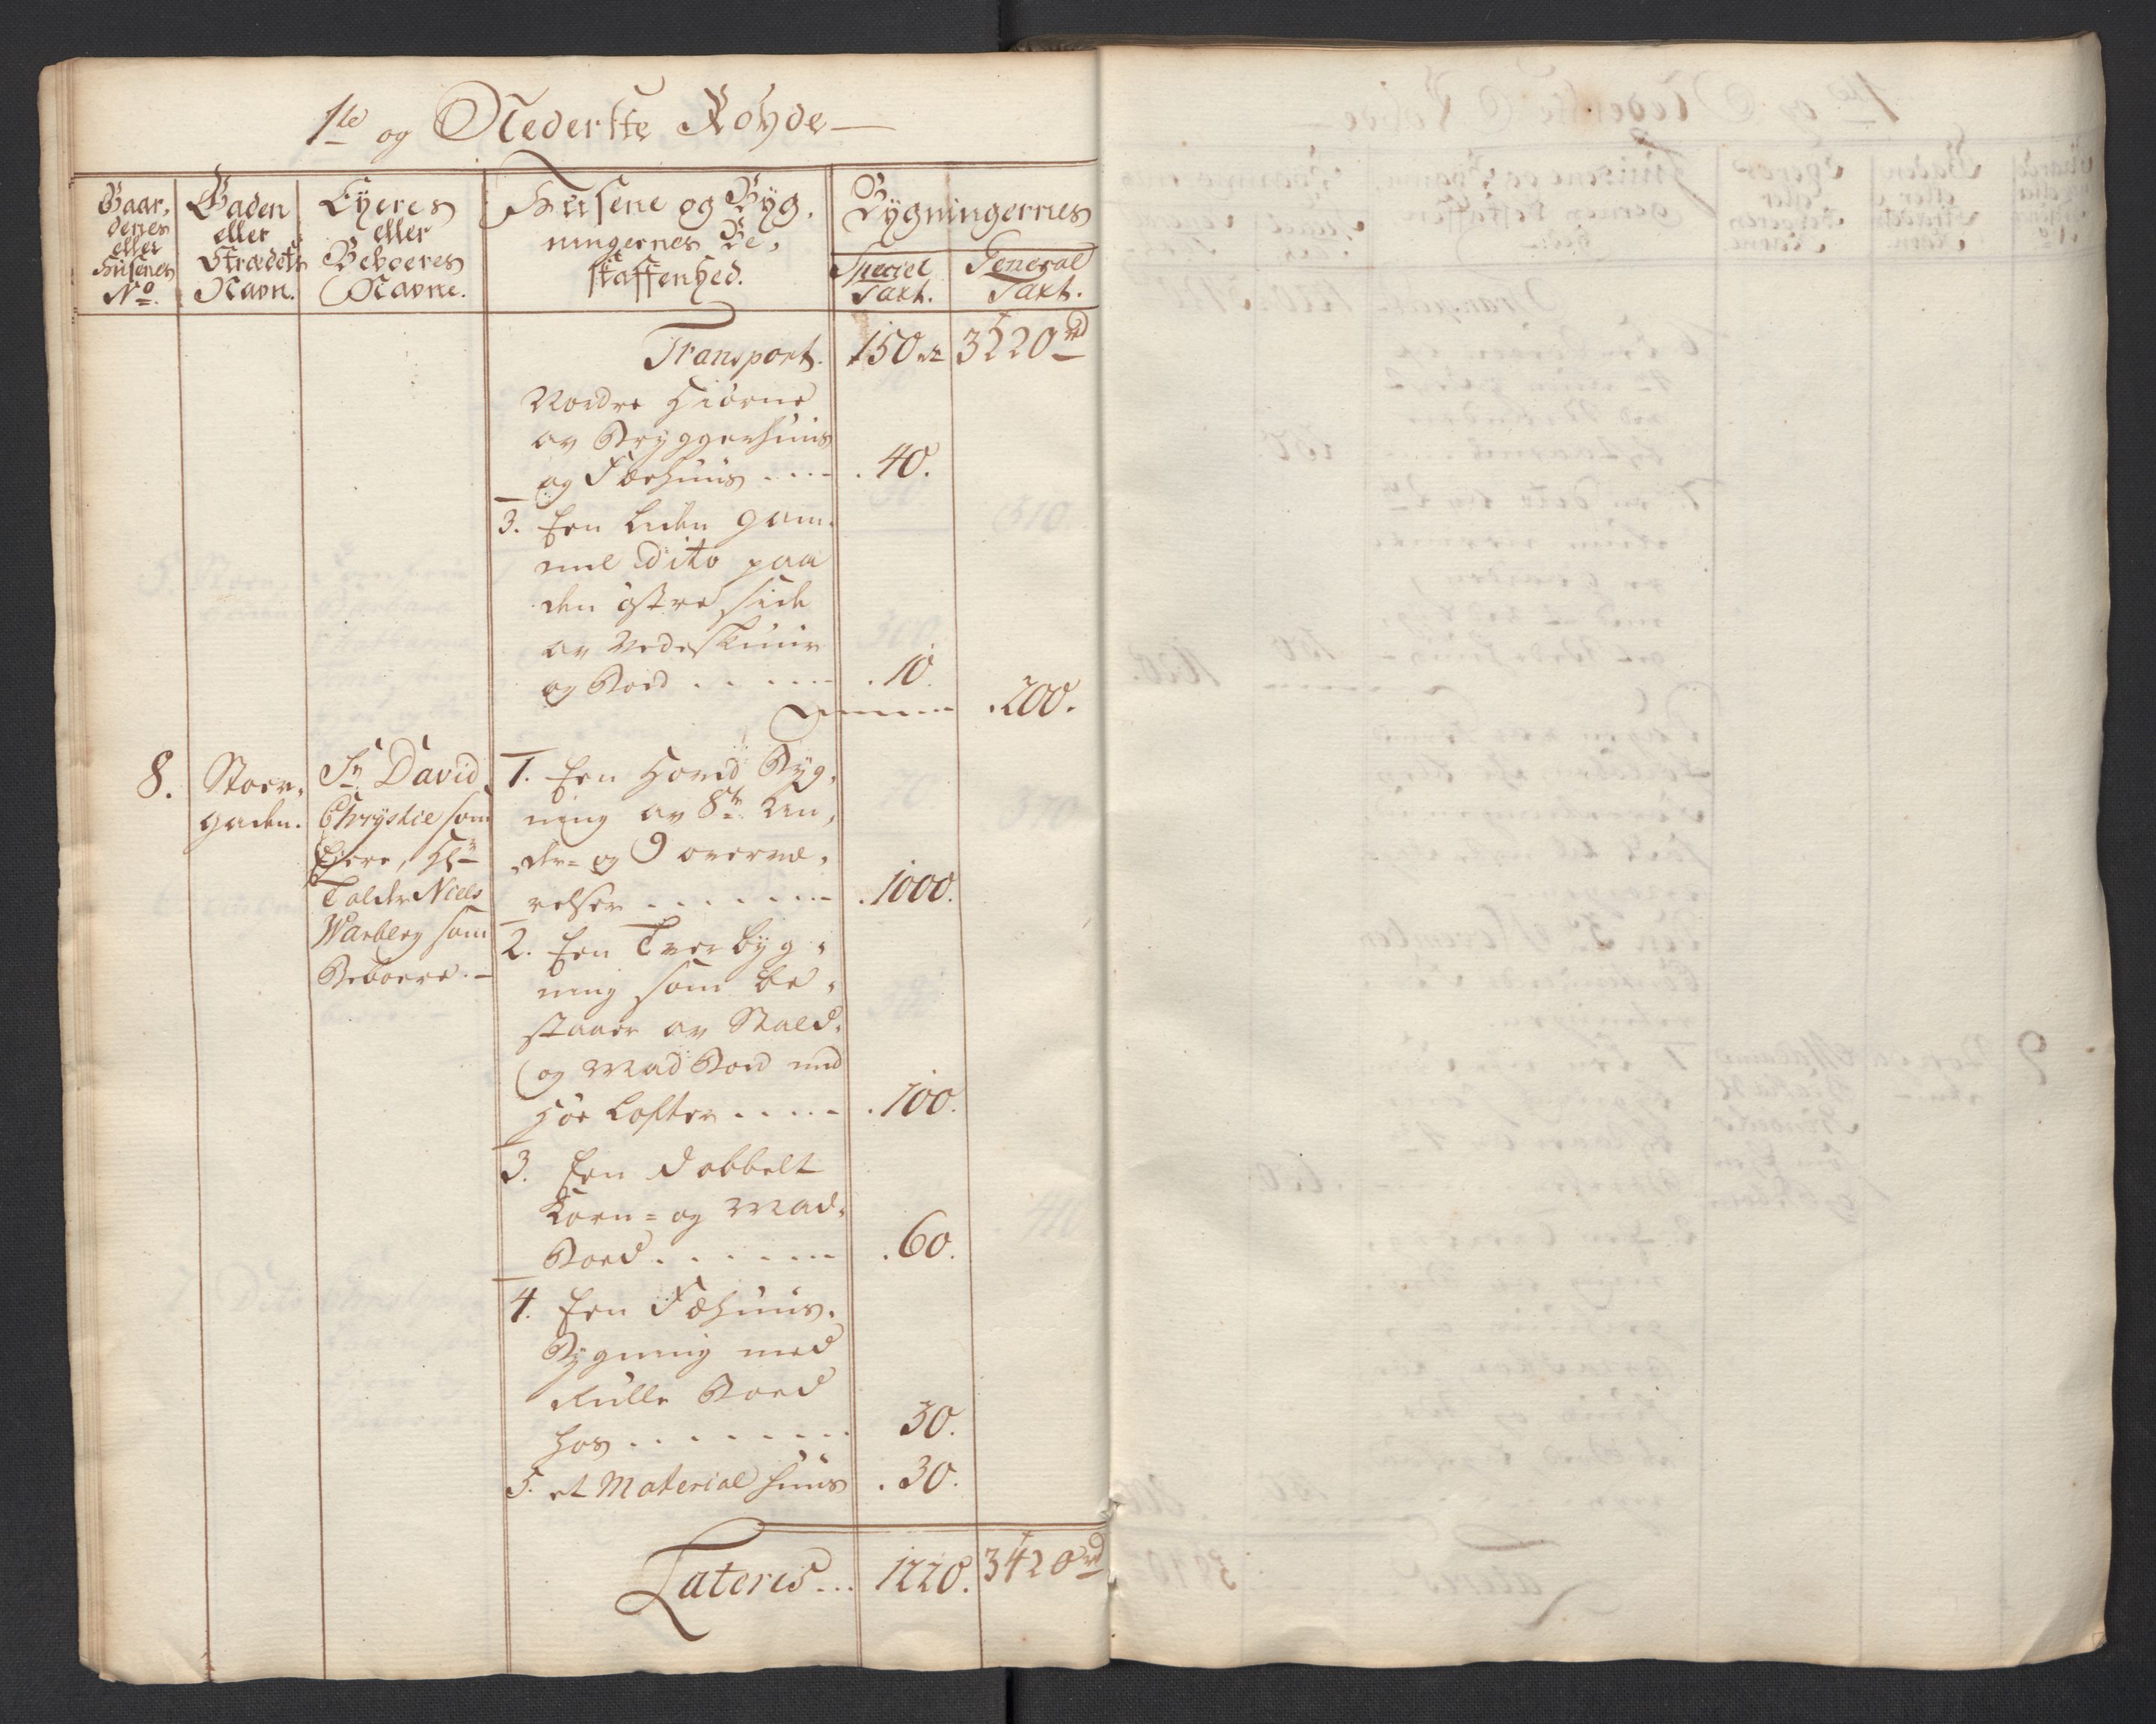 1te og Nederste Røyde
Gaar,
denes
eller
Huusenes
No.
Gaden
eller
Strædets
Navn.
Eyeres
eller
Beboeres
Navne.
Huusene og Byg,
ningernes Be,
skaffenhed.
Bygningernes
Speciel
Taxt.
General
Taxt.
Transport. 150 rd 3220 rd
Nordre Hiørne
av Bryggerhuus
og Fæehuus . . . . . 40.
3. Een liden gam,
mel dito paa
den østre side
av Vedeskuur
og Boed . . . . . . 10.
. 200.
8. Stoer,
gaden.
Sr. David
Chrystie som
Ejere, Hr.
Tolder Niels
Warberg som
Beboere. -
1. Een Hoved Byg,
ning av 8te Un,
der- og 9 overvæ,
relser . . . . . . . 1000.
2. Een Tverbyg,
ning som be,
staaer av Stald,
og Mad Boed med
Høe Lofter . . . . . 100.
3. Een dobbelt
Korn- og Mad,
Boed . . . . . . . 60.
4. Een Fæhuus,
Bygning med
Rulle Boed
hos . . . . . . . . 30.
5. et Material huus . 30.
Lateris . . . 1220. 3420 rd